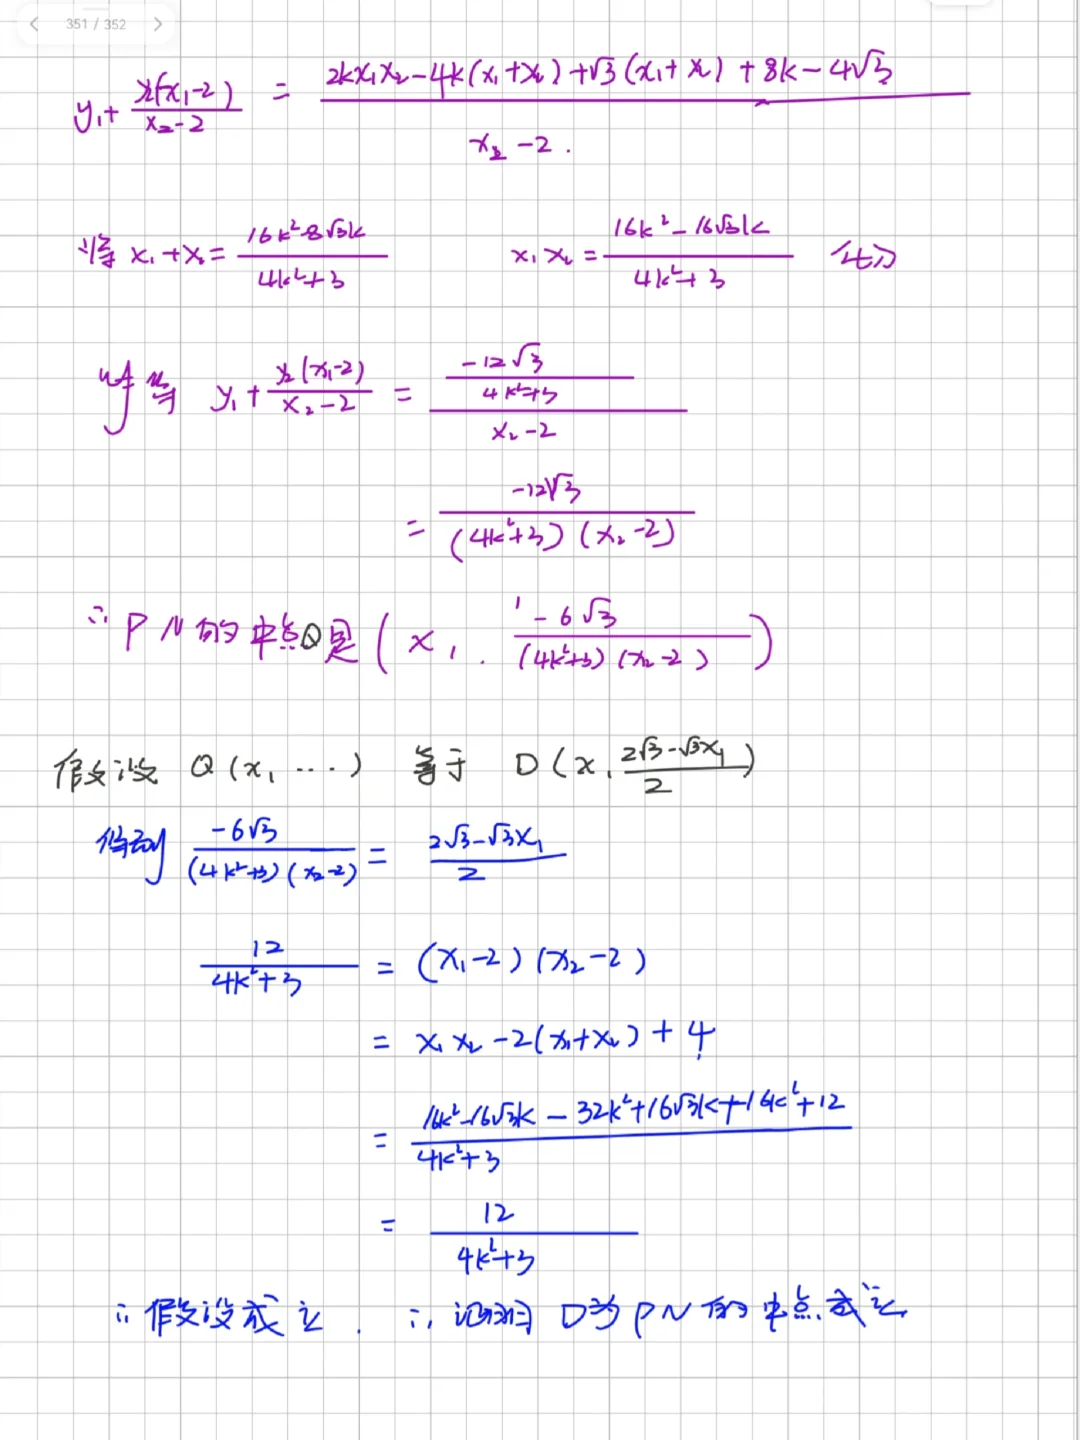 351 / 352
y₁ + y₂(x₁-2)/(x₂-2) = (2kx₁x₂ - 4k(x₁+x₂) + √3(x₁+x₂) + 8k - 4√3)/(x₂-2).
将 x₁+x₂ = (16k²-8√3k)/(4k²+3) x₁x₂ = (16k²-16√3k)/(4k²+3) 代入
y₁ + y₂(x₁-2)/(x₂-2) = (-12√3/(4k²+3))/(x₂-2)
= -12√3/((4k²+3)(x₂-2))
∴ PN的中点Q是(x₁, -6√3/((4k²+3)(x₂-2)))
假设 Q(x₁, ...) 等于 D(x, (2√3-√3x₁)/2)
得到 -6√3/((4k²+3)(x₂-2)) = (2√3-√3x₁)/2
12/(4k²+3) = (x₁-2)(x₂-2)
= x₁x₂ - 2(x₁+x₂) + 4
= (16k²-16√3k - 32k²+16√3k+16k²+12)/(4k²+3)
= 12/(4k²+3)
∴ 假设成立. ∴ 证明 D为PN的中点成立